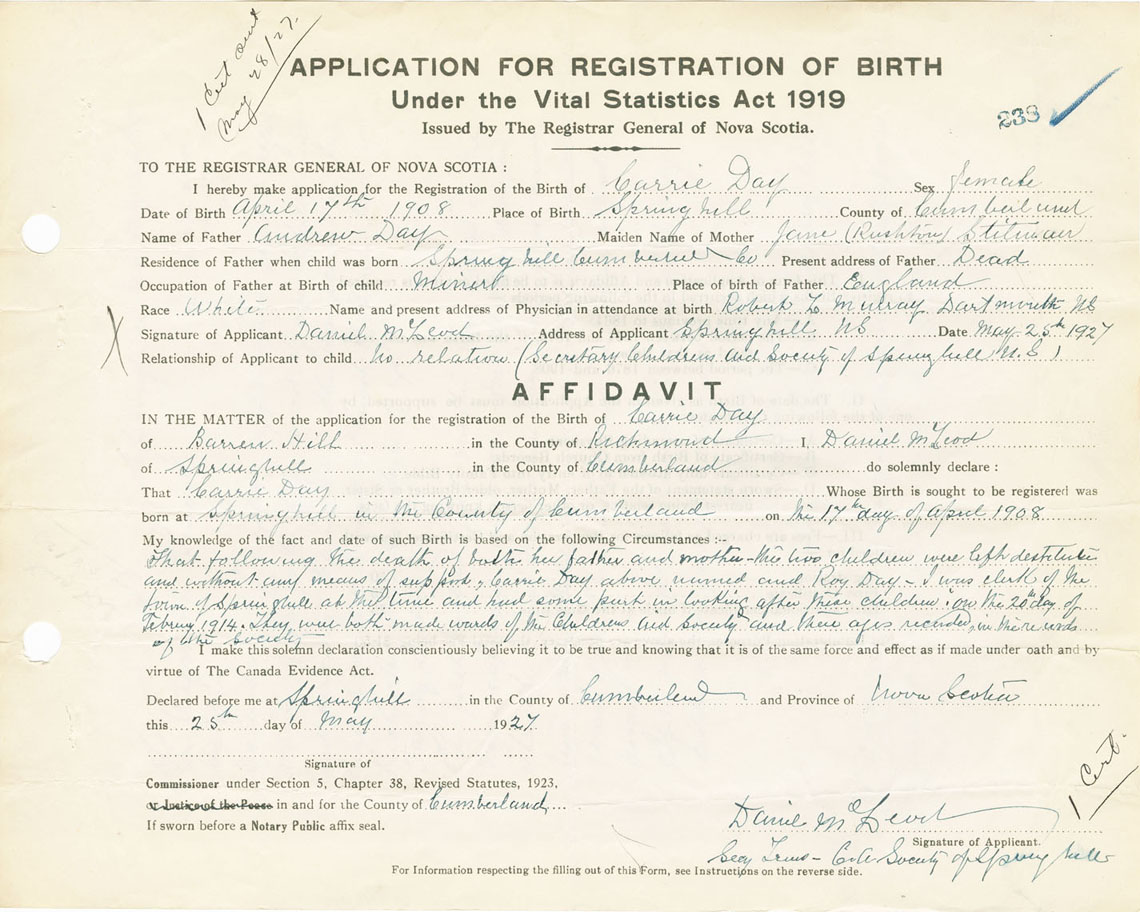 1 Cert sent
May 28/27.
APPLICATION FOR REGISTRATION OF BIRTH
Under the Vital Statistics Act 1919
238
Issued by The Registrar General of Nova Scotia.
TO THE REGISTRAR GENERAL OF NOVA SCOTIA :
I hereby make application for the Registration of the Birth of Carrie Day Sex female
Date of Birth April 17th 1908 Place of Birth Springhill County of Cumberland
Name of Father Andrew Day Maiden Name of Mother Jane (Rushton)
Residence of Father when child was born Springhill Cumberland Co Present address of Father Dead
Occupation of Father at Birth of child Miner Place of birth of Father England
Race White Name and present address of Physician in attendance at birth Robert L Murray Dartmouth NS
Signature of Applicant Daniel McLeod Address of Applicant Springhill NS Date May 25th 1927
Relationship of Applicant to child no relation (Secretary Childrens Aid Society of Springhill N.S.)
AFFIDAVIT
IN THE MATTER of the application for the registration of the Birth of Carrie Day
of Barren Hill in the County of Richmond I, Daniel McLeod
of Springhill in the County of Cumberland do solemnly declare :
That Carrie Day Whose Birth is sought to be registered was
born at Springhill in the County of Cumberland on the 17th day of April 1908
My knowledge of the fact and date of such Birth is based on the following Circumstances :--
That following the death of both her father and mother - the two children were left destitute
and without any means of support, Carrie Day above named and Roy Day - I was clerk of the
town of Springhill at the time and had some part in looking after these children. on the 20th day of
Febury 1914. They were both made wards of the Childrens Aid Society and there ages recorded in the records
of the Society
I make this solemn declaration conscientiously believing it to be true and knowing that it is of the same force and effect as if made under oath and by
virtue of The Canada Evidence Act.
Declared before me at Springhill in the County of Cumberland and Province of Nova Scotia
this 25th day of May 1927
Signature of
Commissioner under Section 5, Chapter 38, Revised Statutes, 1923,
or Justice of the Peace in and for the County of Cumberland
If sworn before a Notary Public affix seal.
1 Cert.
Daniel McLeod
Signature of Applicant.
Secy Treas - C.A Society of Springhill
For Information respecting the filling out of this Form, see Instructions on the reverse side.